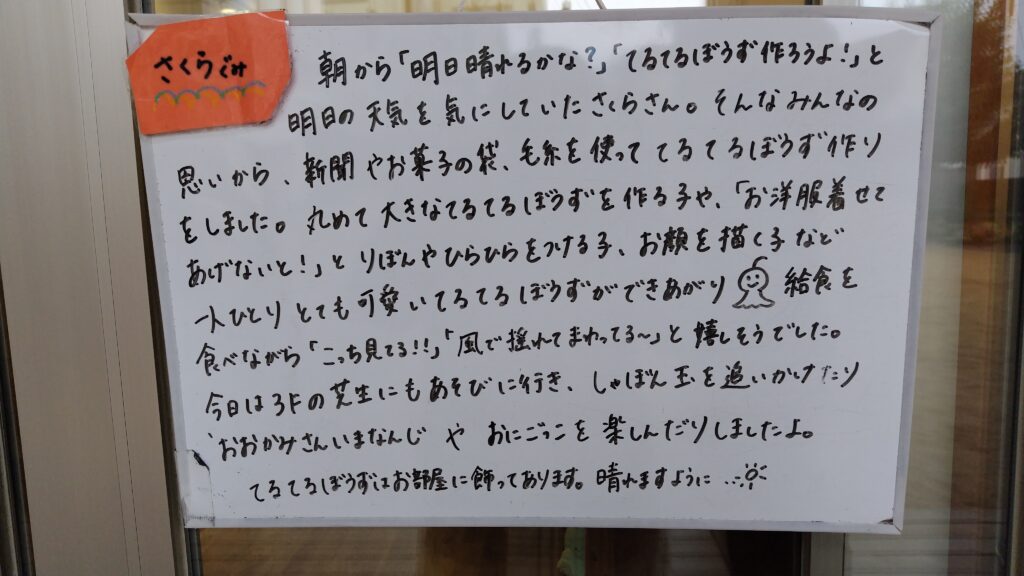 さくらぐみ
朝から「明日晴れるかな?」「てるてるぼうず作ろうよ!」と
明日の天気を気にしていたさくらさん。そんなみんなの
思いから、新聞やお菓子の袋、毛糸を使っててるてるぼうず作り
をしました。丸めて大きなてるてるぼうずを作る子や、「お洋服着せて
あげないと!」とりぼんやひらひらをつける子、お顔を描く子など
一人ひとりとても可愛いてるてるぼうずができあがり 給食を
食べながら「こっち見てる!!」「風で揺れてまわってる〜」と嬉しそうでした。
今日は3Fの芝生にもあそびに行き、しゃぼん玉を追いかけたり
おおかみさんいまなんじ や おにごっこを楽しんだりしましたよ。
てるてるぼうずはお部屋に飾ってあります。晴れますように